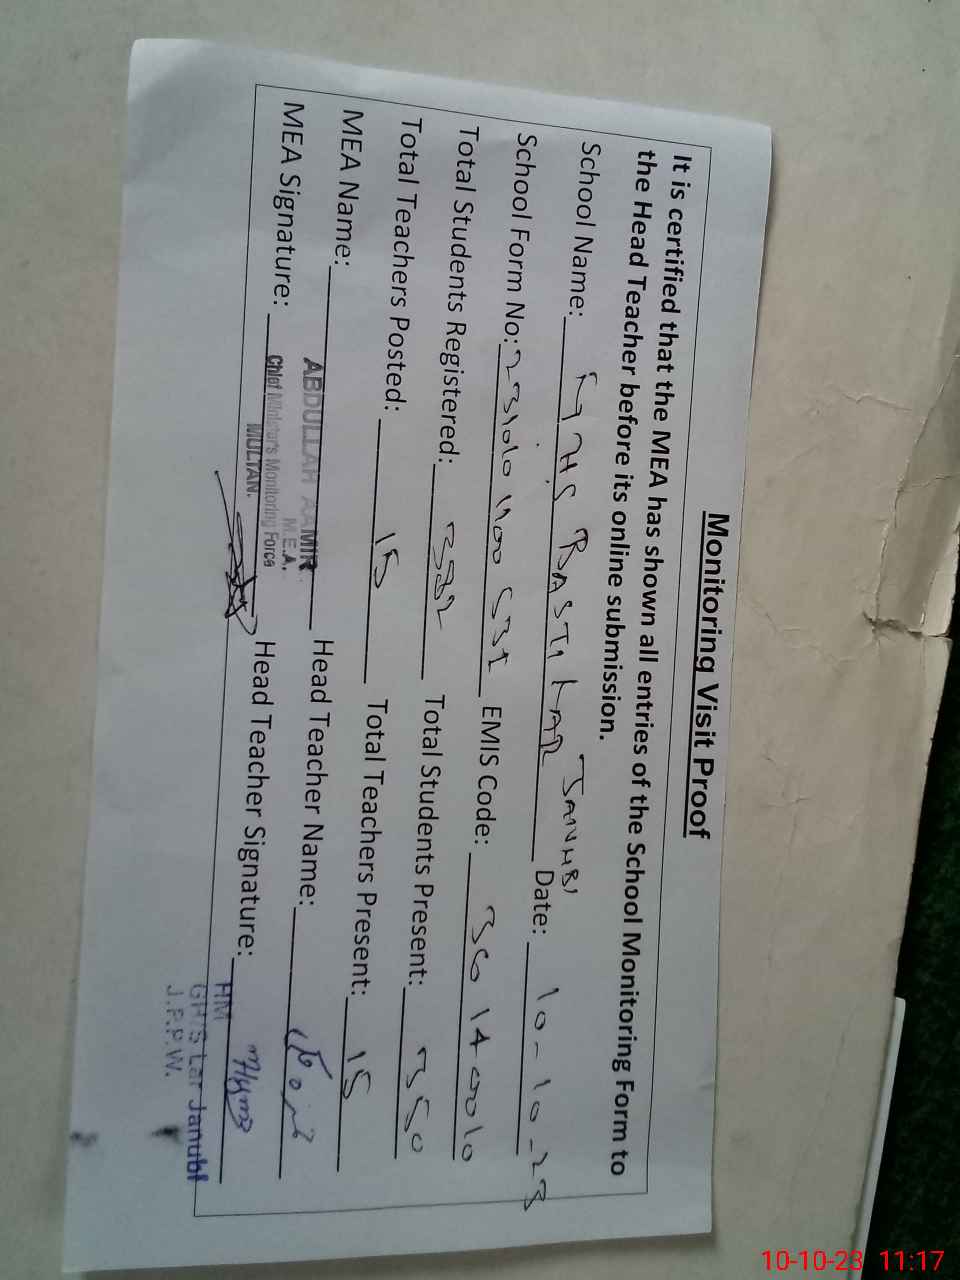 Monitoring Visit Proof
It is certified that the MEA has shown all entries of the School Monitoring Form to
the Head Teacher before its online submission.
School Name: GHS BASTI LAR JANUBI Date: 10-10-23
School Form No: EMIS Code:
Total Students Registered: 382 Total Students Present: 350
Total Teachers Posted: 15 Total Teachers Present: 15
MEA Name: ABDULLAH AAMIR Head Teacher Name:
M.E.A.
MEA Signature: Chief Minister's Monitoring Force Head Teacher Signature:
MULTAN.
HM
GHS Lar Janubi
J.P.P.W.
10-10-23 11:17